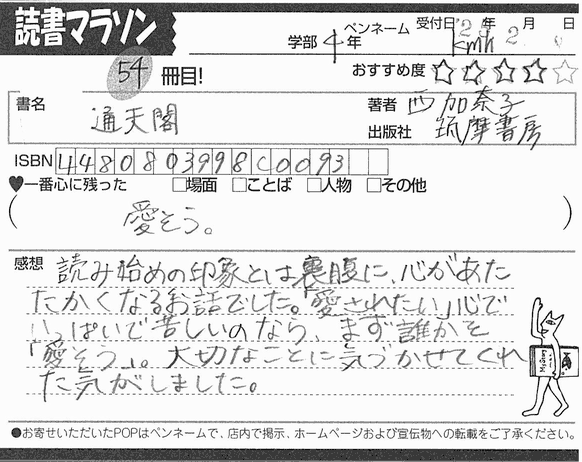 読書マラソン
学部 4年 ペンネーム kmh 受付日 年 2月 日
54 冊目!
おすすめ度 ☆☆☆☆☆
書名 通天閣
著者 西加奈子
出版社 筑摩書房
ISBN 4480803998C0093
♥一番心に残った □場面 □ことば □人物 □その他
( 愛そう。 )
感想 読み始めの印象とは裏腹に、心があた
たかくなるお話でした。「愛されたい」心で
いっぱいで苦しいのなら、まず誰かを
「愛そう」。大切なことに気づかせてくれ
た気がしました。
●お寄せいただいたPOPはペンネームで、店内で掲示、ホームページおよび宣伝物への転載をご了承ください。